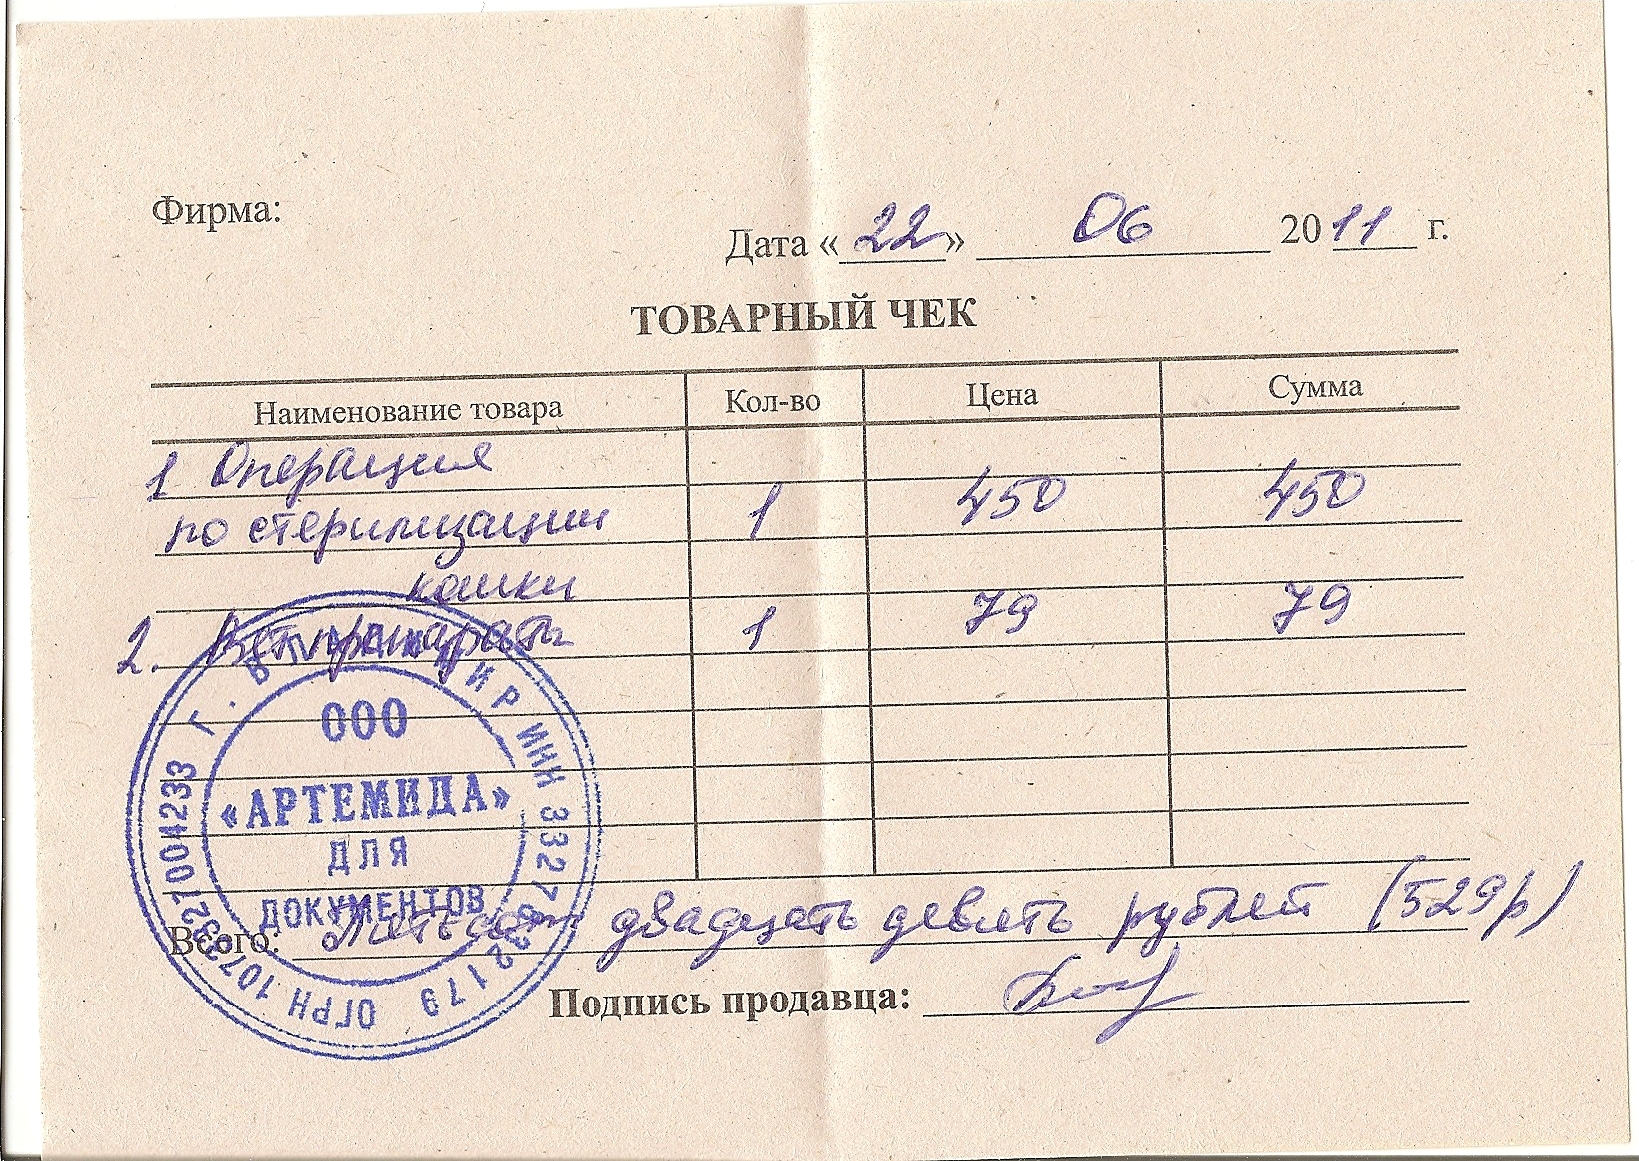 Фирма:
Дата «22» 06 2011 г.
ТОВАРНЫЙ ЧЕК
Наименование товара Кол-во Цена Сумма
1 Операция
по стерилизации 1 450 450
кошки
2. Ветпрепараты 1 79 79
Г. ВЛАДИМИР ИНН 332
ОГРН 1073327004233
ООО
«АРТЕМИДА»
ДЛЯ
ДОКУМЕНТОВ
Всего: Пятьсот двадцать девять рублей (529р)
Подпись продавца: